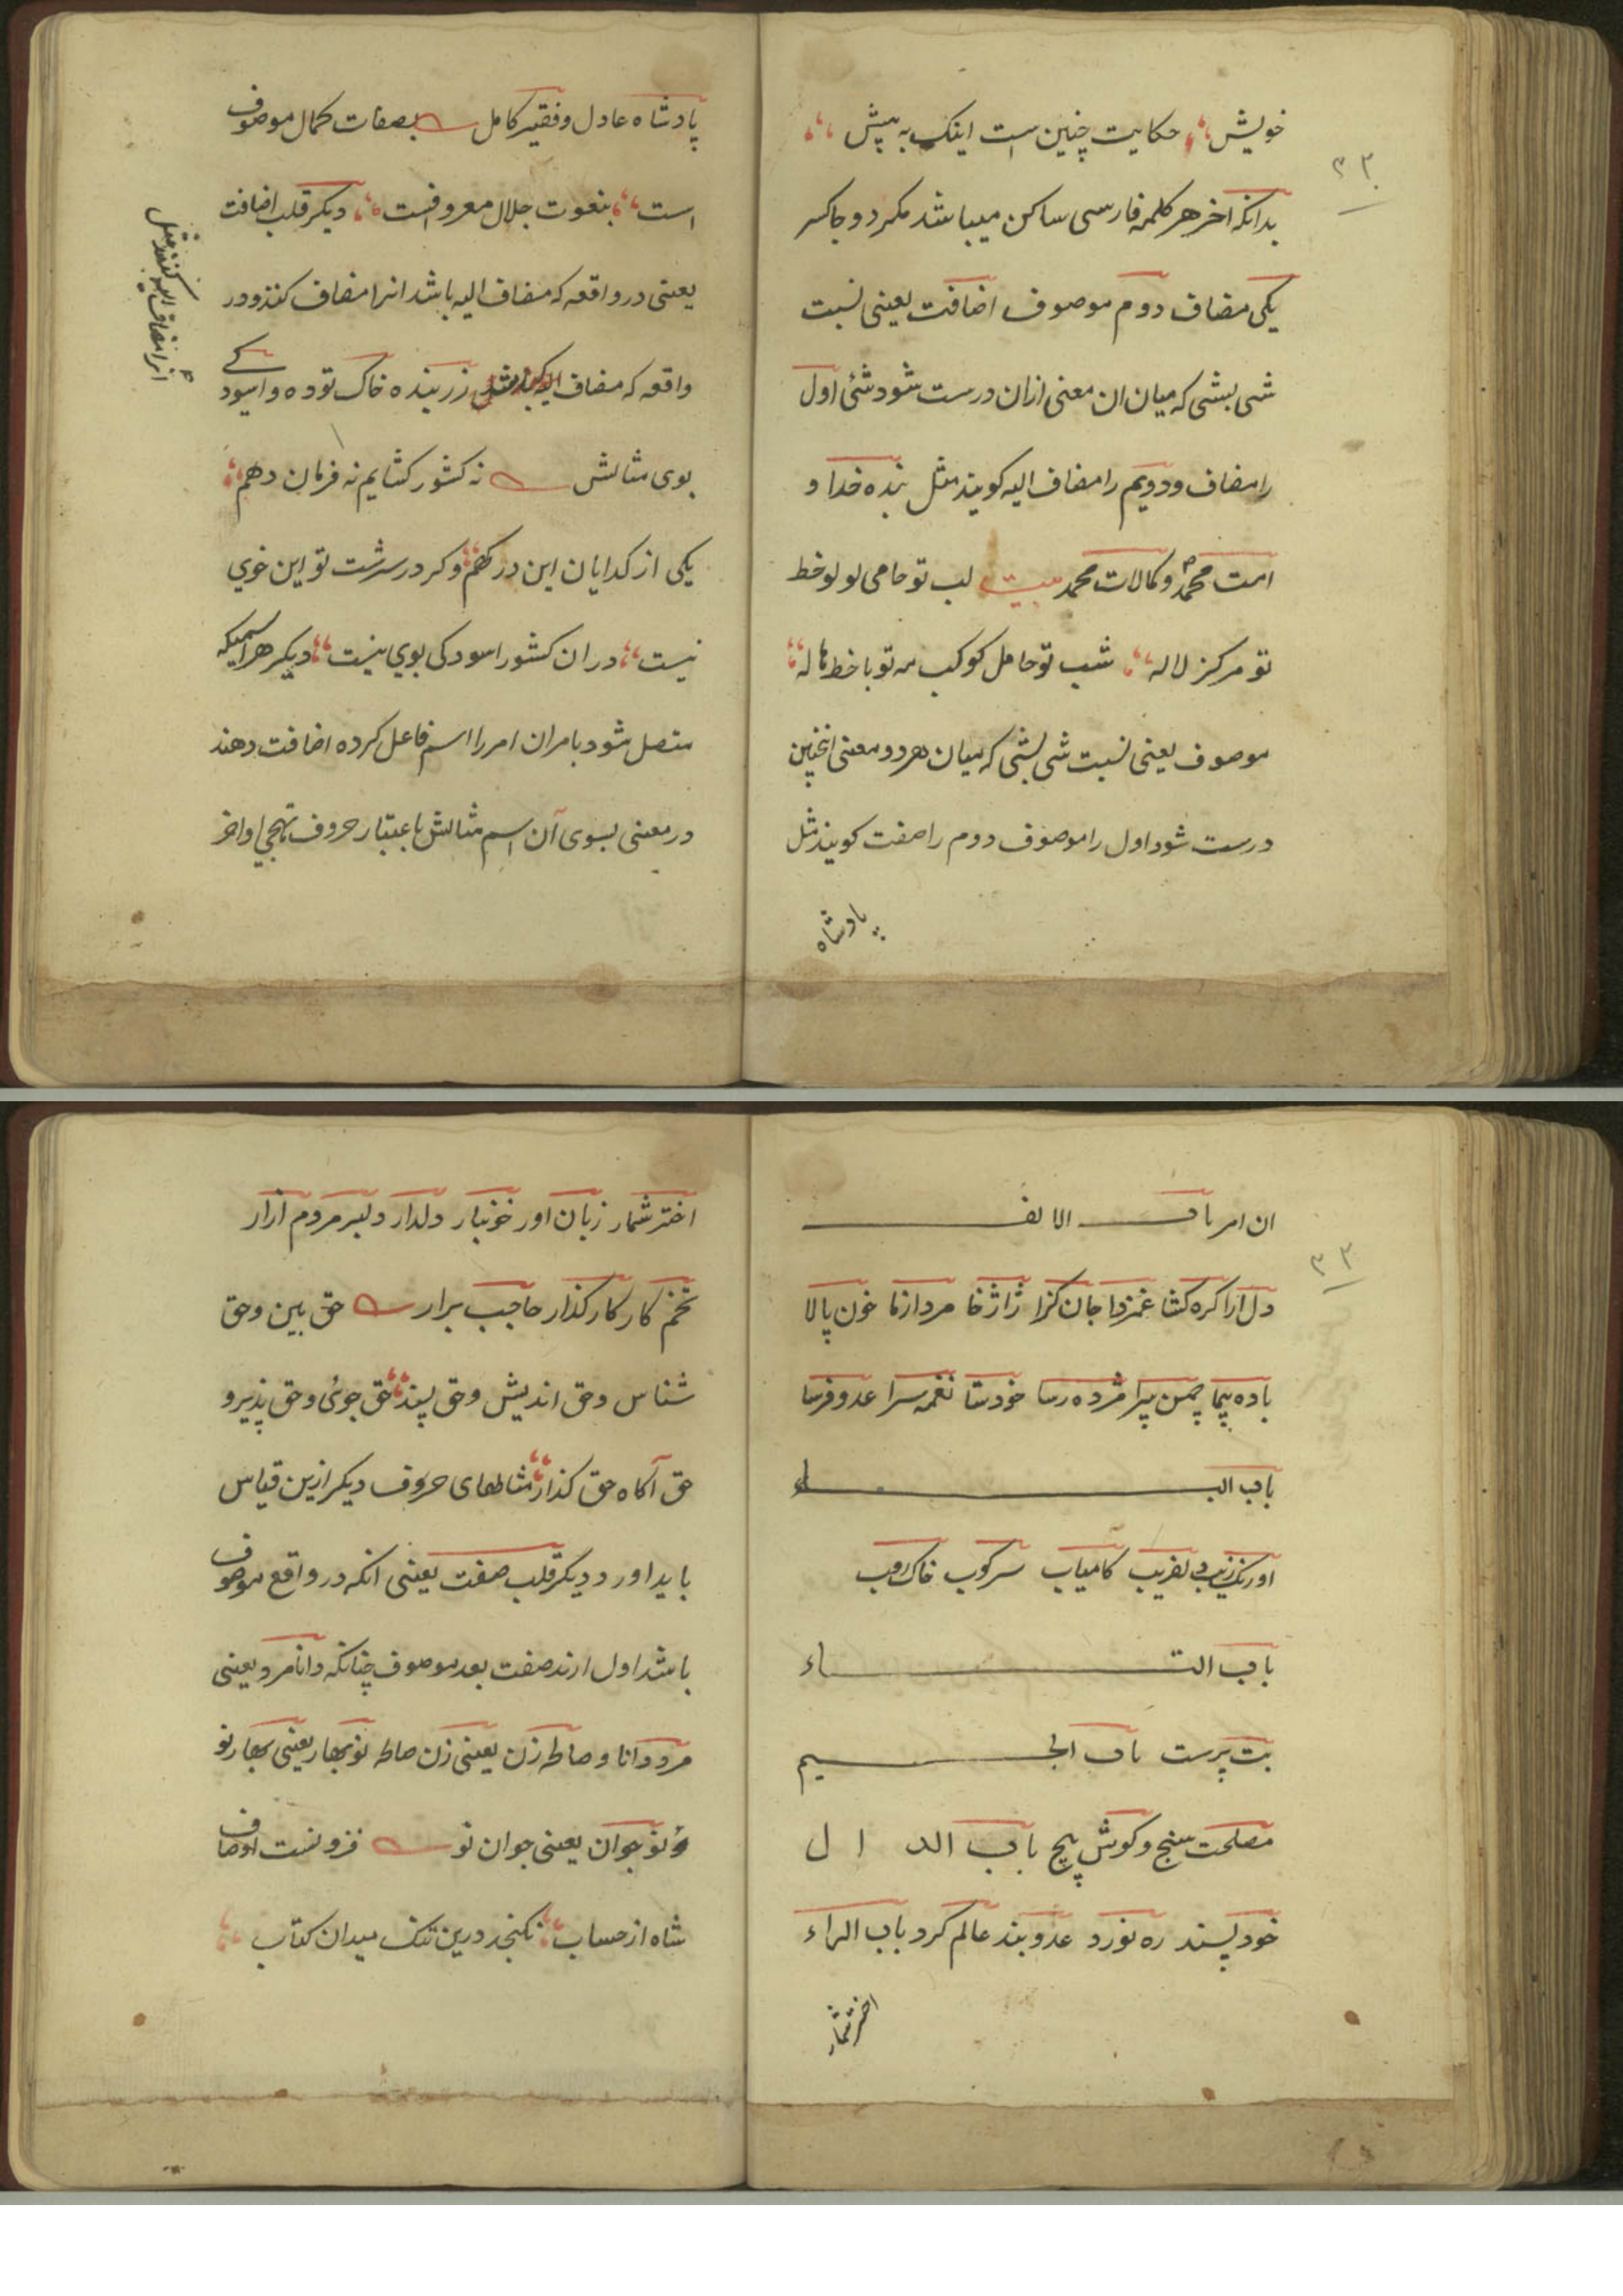 خویش حکایت چنین است اینک به پیش
۳۲
بدانکه اخر هر کلمه فارسی ساکن میباشد مگر دو جا کسر
یکی مضاف دوم موصوف اضافت یعنی نسبت
شی بشی که میان ان معنی ازان درست شود شئ اول
را مضاف و دویم را مضاف الیه کویند مثل بنده خدا و
امت محمد و کمالات محمد بیت لب تو حامی لولو خط
تو مرکز لاله شب تو حامل کوکب مه تو با خط هاله
موصوف یعنی نسبت شی بشی که میان هر دو معنی اینچنین
درست شود اول را موصوف دوم را صفت کویند مثل
پادشاه
پادشاه عادل و فقیر کامل بصفات کمال موصوف
است بنعوت جلال معروفست دیکر قلب اضافت
یعنی در واقعه که مضاف الیه باشد انرا مضاف کنند و در
واقعه که مضاف زر بنده خاک توده و اسودکی
انرا مضاف الیه کنند مثل
بوی مثالش نه کشور کشایم نه فرمان دهم
یکی از کدایان این درکهم وکر در سرشت تو این خوی
نیست دران کشور اسودکی بوی نیست دیکر هر اسمیکه
متصل شود بامران امر را اسم فاعل کرده اضافت دهند
در معنی بسوی آن اسم مثالش باعتبار حروف تهجی اواخر
ان امر باب الالف
۳۳
دل ارا کره کشا غمزدا جان کزا ژاژخا مردازما خون پالا
باده پیما چمن پیرا مژده رسا خودستا نغمه سرا عدو فرسا
باب الباء
اورنک زیب دلفریب کامیاب سرکوب خاک روب
باب التاء
بت پرست باب الجیم
مصلحت سنج و کوش پیچ باب الدال
خود پسند ره نورد عدوبند عالم کرد باب الراء
اختر شمار
اختر شمار زبان اور خونبار دلدار دلبر مردم ازار
تخم کار کار کذار حاجب برار حق بین و حق
شناس و حق اندیش و حق پسند حق جوئی و حق پذیر و
حق آکاه حق کذار مثالهای حروف دیکر ازین قیاس
باید اورد دیکر قلب صفت یعنی انکه در واقع موصوف
باشد اول ارند صفت بعد موصوف چنانکه دانا مرد یعنی
مرد دانا و صالحه زن یعنی زن صالحه نوبهار یعنی بهار نو
و نوجوان یعنی جوان نو فزونست اوصاف
شاه از حساب نکنجد درین تنک میدان کتاب